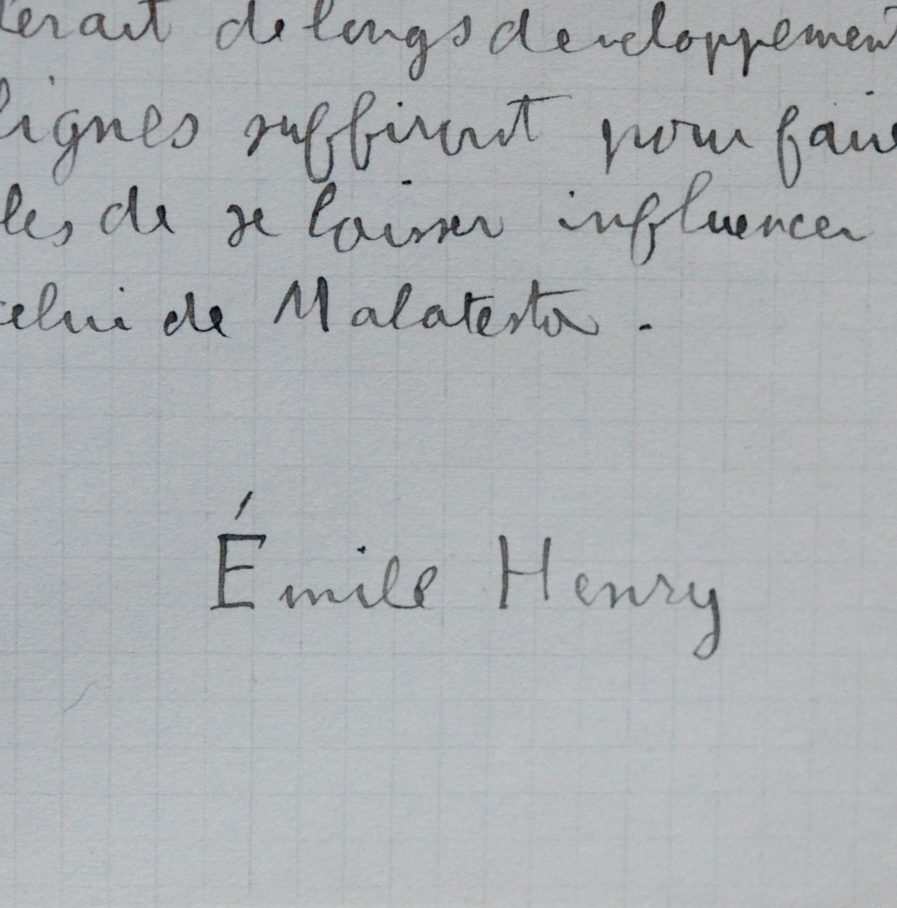 terait de longs developpement
lignes suffiront pour faire
les de se laisser influencer
celui de Malatesta.
Émile Henry